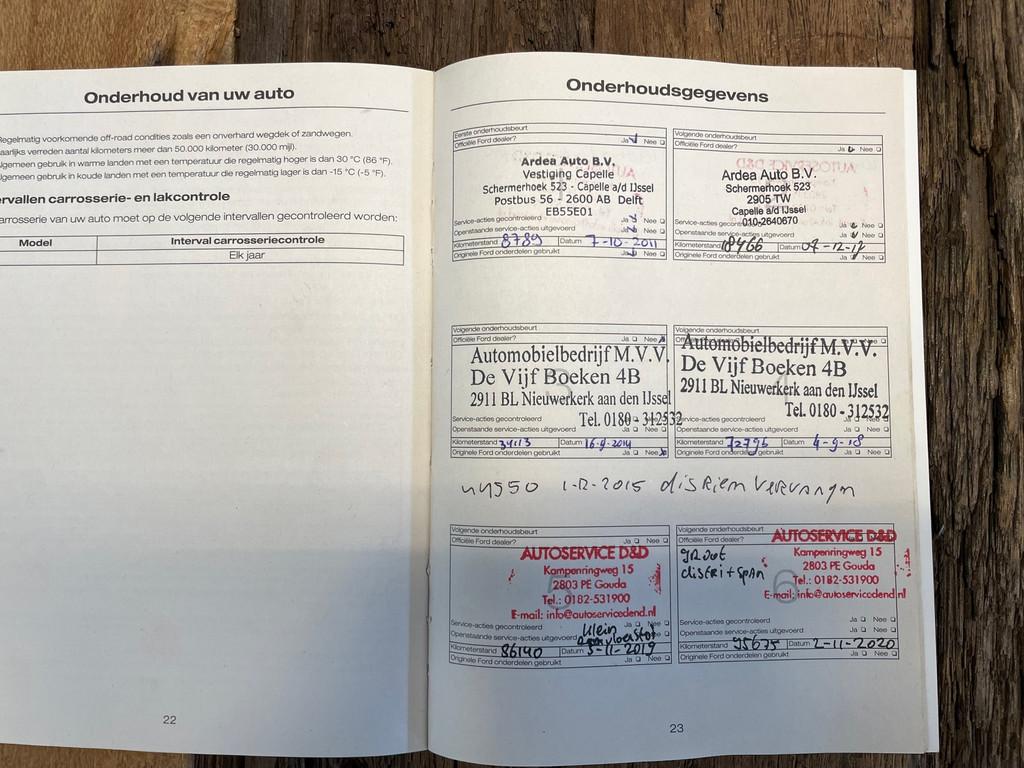 Onderhoud van uw auto
Regelmatig voorkomende off-road condities zoals een onverhard wegdek of zandwegen.
aarlijks verreden aantal kilometers meer dan 50.000 kilometer (30.000 mijl).
lgemeen gebruik in warme landen met een temperatuur die regelmatig hoger is dan 30 °C (86 °F).
lgemeen gebruik in koude landen met een temperatuur die regelmatig lager is dan -15 °C (-5 °F).
ervallen carrosserie- en lakcontrole
arrosserie van uw auto moet op de volgende intervallen gecontroleerd worden:
Model Interval carrosseriecontrole
Elk jaar
22
Onderhoudsgegevens
Eerste onderhoudsbeurt
Officiële Ford dealer? Ja Nee
Ardea Auto B.V.
Vestiging Capelle
Schermerhoek 523 - Capelle a/d IJssel
Postbus 56 - 2600 AB Delft
EB55E01
Service-acties gecontroleerd Ja Nee
Openstaande service-acties uitgevoerd Ja Nee
Kilometerstand 8789 Datum 7-10-2011
Originele Ford onderdelen gebruikt Ja Nee
Volgende onderhoudsbeurt
Officiële Ford dealer? Ja Nee
AUTOSERVICE D&D
Ardea Auto B.V.
Schermerhoek 523
2905 TW
Capelle a/d IJssel
010-2640670
Service-acties gecontroleerd Ja Nee
Openstaande service-acties uitgevoerd Ja Nee
Kilometerstand 18466 Datum 07-12-12
Originele Ford onderdelen gebruikt Ja Nee
Volgende onderhoudsbeurt
Officiële Ford dealer? Ja Nee
3
Automobielbedrijf M.V.V.
De Vijf Boeken 4B
2911 BL Nieuwerkerk aan den IJssel
Tel. 0180 - 312532
Service-acties gecontroleerd
Openstaande service-acties uitgevoerd Ja Nee
Kilometerstand 34113 Datum 16-9-2014
Originele Ford onderdelen gebruikt Ja Nee
Volgende onderhoudsbeurt
Automobielbedrijf M.V.V.
De Vijf Boeken 4B
2911 BL Nieuwerkerk aan den IJssel
Tel. 0180 - 312532
Service-acties gecontroleerd Ja Nee
Openstaande service-acties uitgevoerd Ja Nee
Kilometerstand 72796 Datum 4-9-18
Originele Ford onderdelen gebruikt Ja Nee
1-12-2015 disRiem vervangen
Volgende onderhoudsbeurt
Officiële Ford dealer? Ja Nee
5
AUTOSERVICE D&D
Kampenringweg 15
2803 PE Gouda
Tel.: 0182-531900
E-mail: info@autoservicedend.nl
Service-acties gecontroleerd Ja Nee
Openstaande service-acties uitgevoerd Ja Nee
Klein
Kilometerstand 86140 Datum 5-11-2019
Originele Ford onderdelen gebruikt Ja Nee
Volgende onderhoudsbeurt
Officiële Ford dealer?
6
AUTOSERVICE D&D
Kampenringweg 15
2803 PE Gouda
Tel.: 0182-531900
E-mail: info@autoservicedend.nl
gRoot
distRi+spAn
Service-acties gecontroleerd Ja Nee
Openstaande service-acties uitgevoerd Ja Nee
Kilometerstand 95675 Datum 2-11-2020
Originele Ford onderdelen gebruikt Ja Nee
23